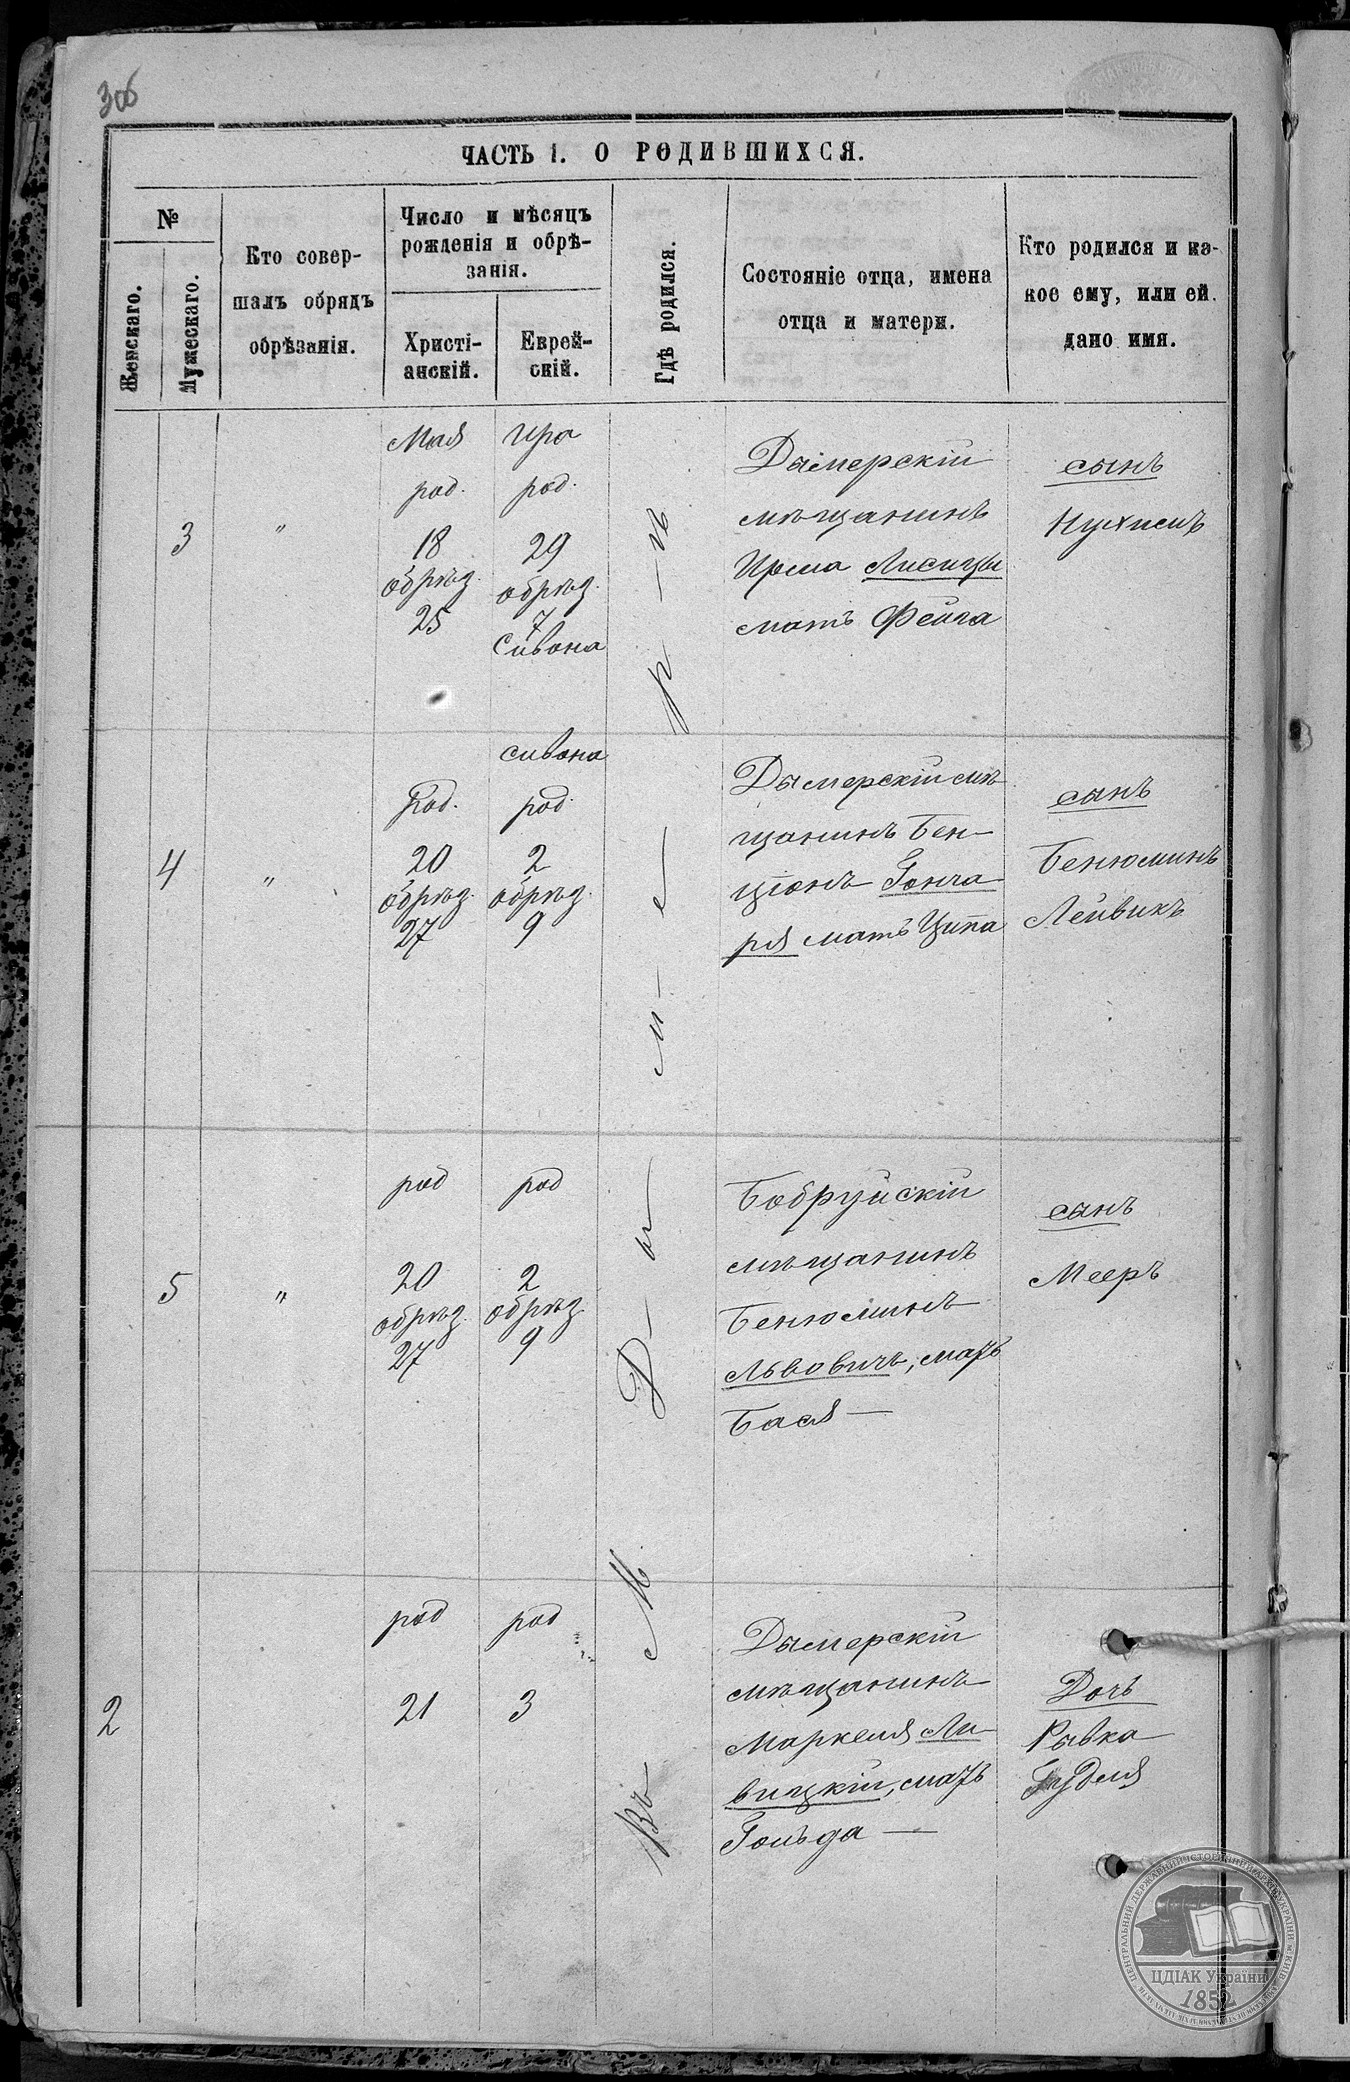 306
ЧАСТЬ I. О РОДИВШИХСЯ.
№
Женскаго.
Мужескаго.
Кто совер-
шалъ обрядъ
обрѣзанія.
Число и мѣсяцъ
рожденія и обрѣ-
занія.
Христі-
анскій.
Еврей-
скій.
Гдѣ родился.
Состояніе отца, имена
отца и матери.
Кто родился и ка-
кое ему, или ей
дано имя.
Въ М. Д-ы-м-е-р-ѣ
3
"
Мая
род.
18
обрѣз.
25
Ира
род.
29
обрѣз.
7
Сивона
Дымерскій
мѣщанинъ
Ирма Лисицы
мать Фейга
сынъ
Нухимъ
4
"
род.
20
обрѣз.
27
сивона
род.
2
обрѣз.
9
Дымерскій мѣ
щанинъ Бен-
ціонъ Гонча
ря мать Ципа
сынъ
Бенюминъ
Лейвикъ
5
"
род
20
обрѣз.
27
род
2
обрѣз.
9
Бобруйскій
мѣщанинъ
Бенюминъ
Львовичъ, мать
Бася —
сынъ
Мееръ
2
род
21
род
3
Дымерскій
мѣщанинъ
Маркеля Ли-
вицкій, мать
Гольда —
Дочь
Рывка
Гудля
ЦЕНТРАЛЬНИЙ ДЕРЖАВНИЙ ІСТОРИЧНИЙ АРХІВ УКРАЇНИ, м. КИЇВ
ЦДІАК України
1852